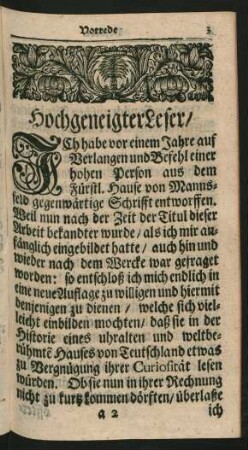 Vorrede 3
Hochgeneigter Leser/
ICh habe vor einem Jahre auf
Verlangen und Befehl einer
hohen Person aus dem
Fürstl. Hause von Manns-
feld gegenwärtige Schrifft entworffen.
Weil nun nach der Zeit der Titul dieser
Arbeit bekandter wurde/ als ich mir an-
fänglich eingebildet hatte/ auch hin und
wieder nach dem Wercke war gefraget
worden: so entschloß ich mich endlich in
eine neue Auflage zu willigen und hiermit
denjenigen zu dienen/ welche sich viel-
leicht einbilden mochten/ daß sie in der
Historie eines uhralten und weltbe-
rühmte Hauses von Teutschland etwas
zu Vergnügung ihrer Curiosität lesen
würden. Ob sie nun in ihrer Rechnung
nicht zu kurtz kommen dörfften/ überlaße
a 2 ich